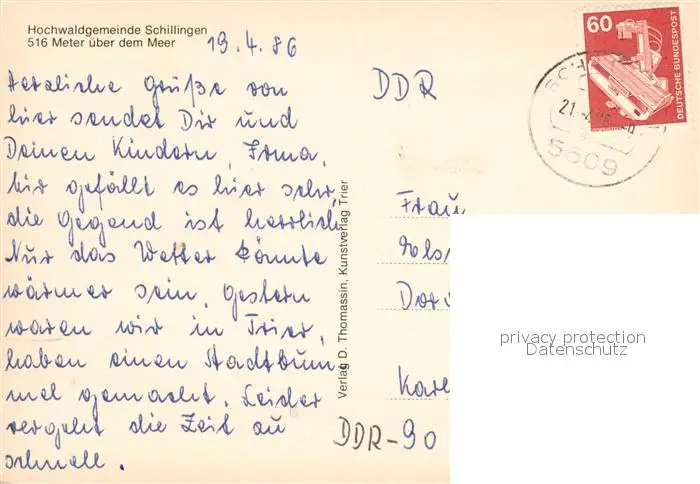 Hochwaldgemeinde Schillingen
516 Meter über dem Meer
19.4.86
Herzliche Grüße von
hier sendet Dir und
Deinen Kindern, Irma.
Mir gefällt es hier sehr,
die Gegend ist herrlich.
Nur das Wetter könnte
wärmer sein. Gestern
waren wir in Trier,
haben einen Stadtbum
mel gemacht. Leider
vergeht die Zeit zu
schnell.
Verlag D. Thomassin, Kunstverlag Trier
DDR
60
DEUTSCHE BUNDESPOST
5509
Frau
DDR-90
privacy protection
Datenschutz